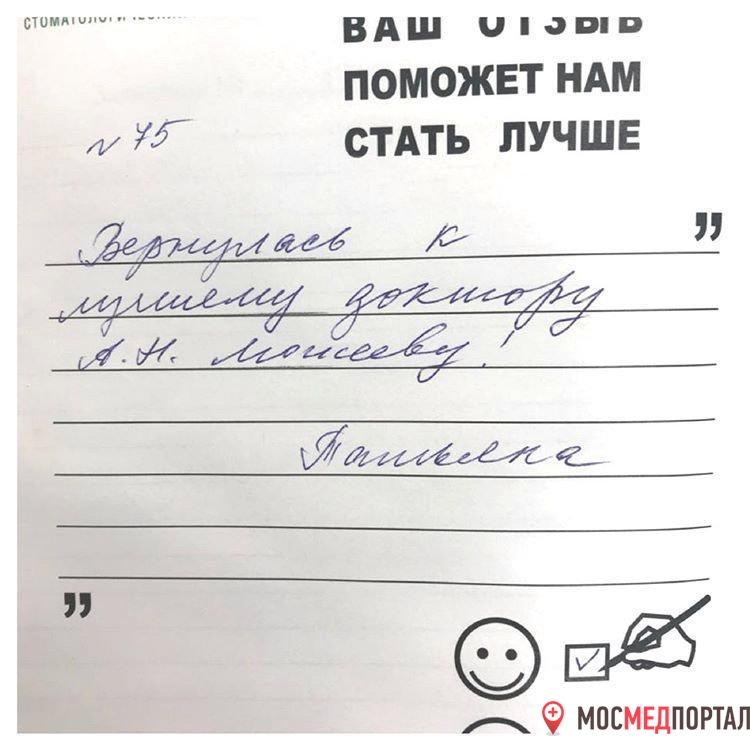 СТОМАТОЛОГИЧЕСКИЙ
ВАШ ОТЗЫВ
ПОМОЖЕТ НАМ
СТАТЬ ЛУЧШЕ
№ 75
"
Вернулась к
лучшему доктору
А.Н. Можееву!
Татьяна
"
МОСМЕДПОРТАЛ